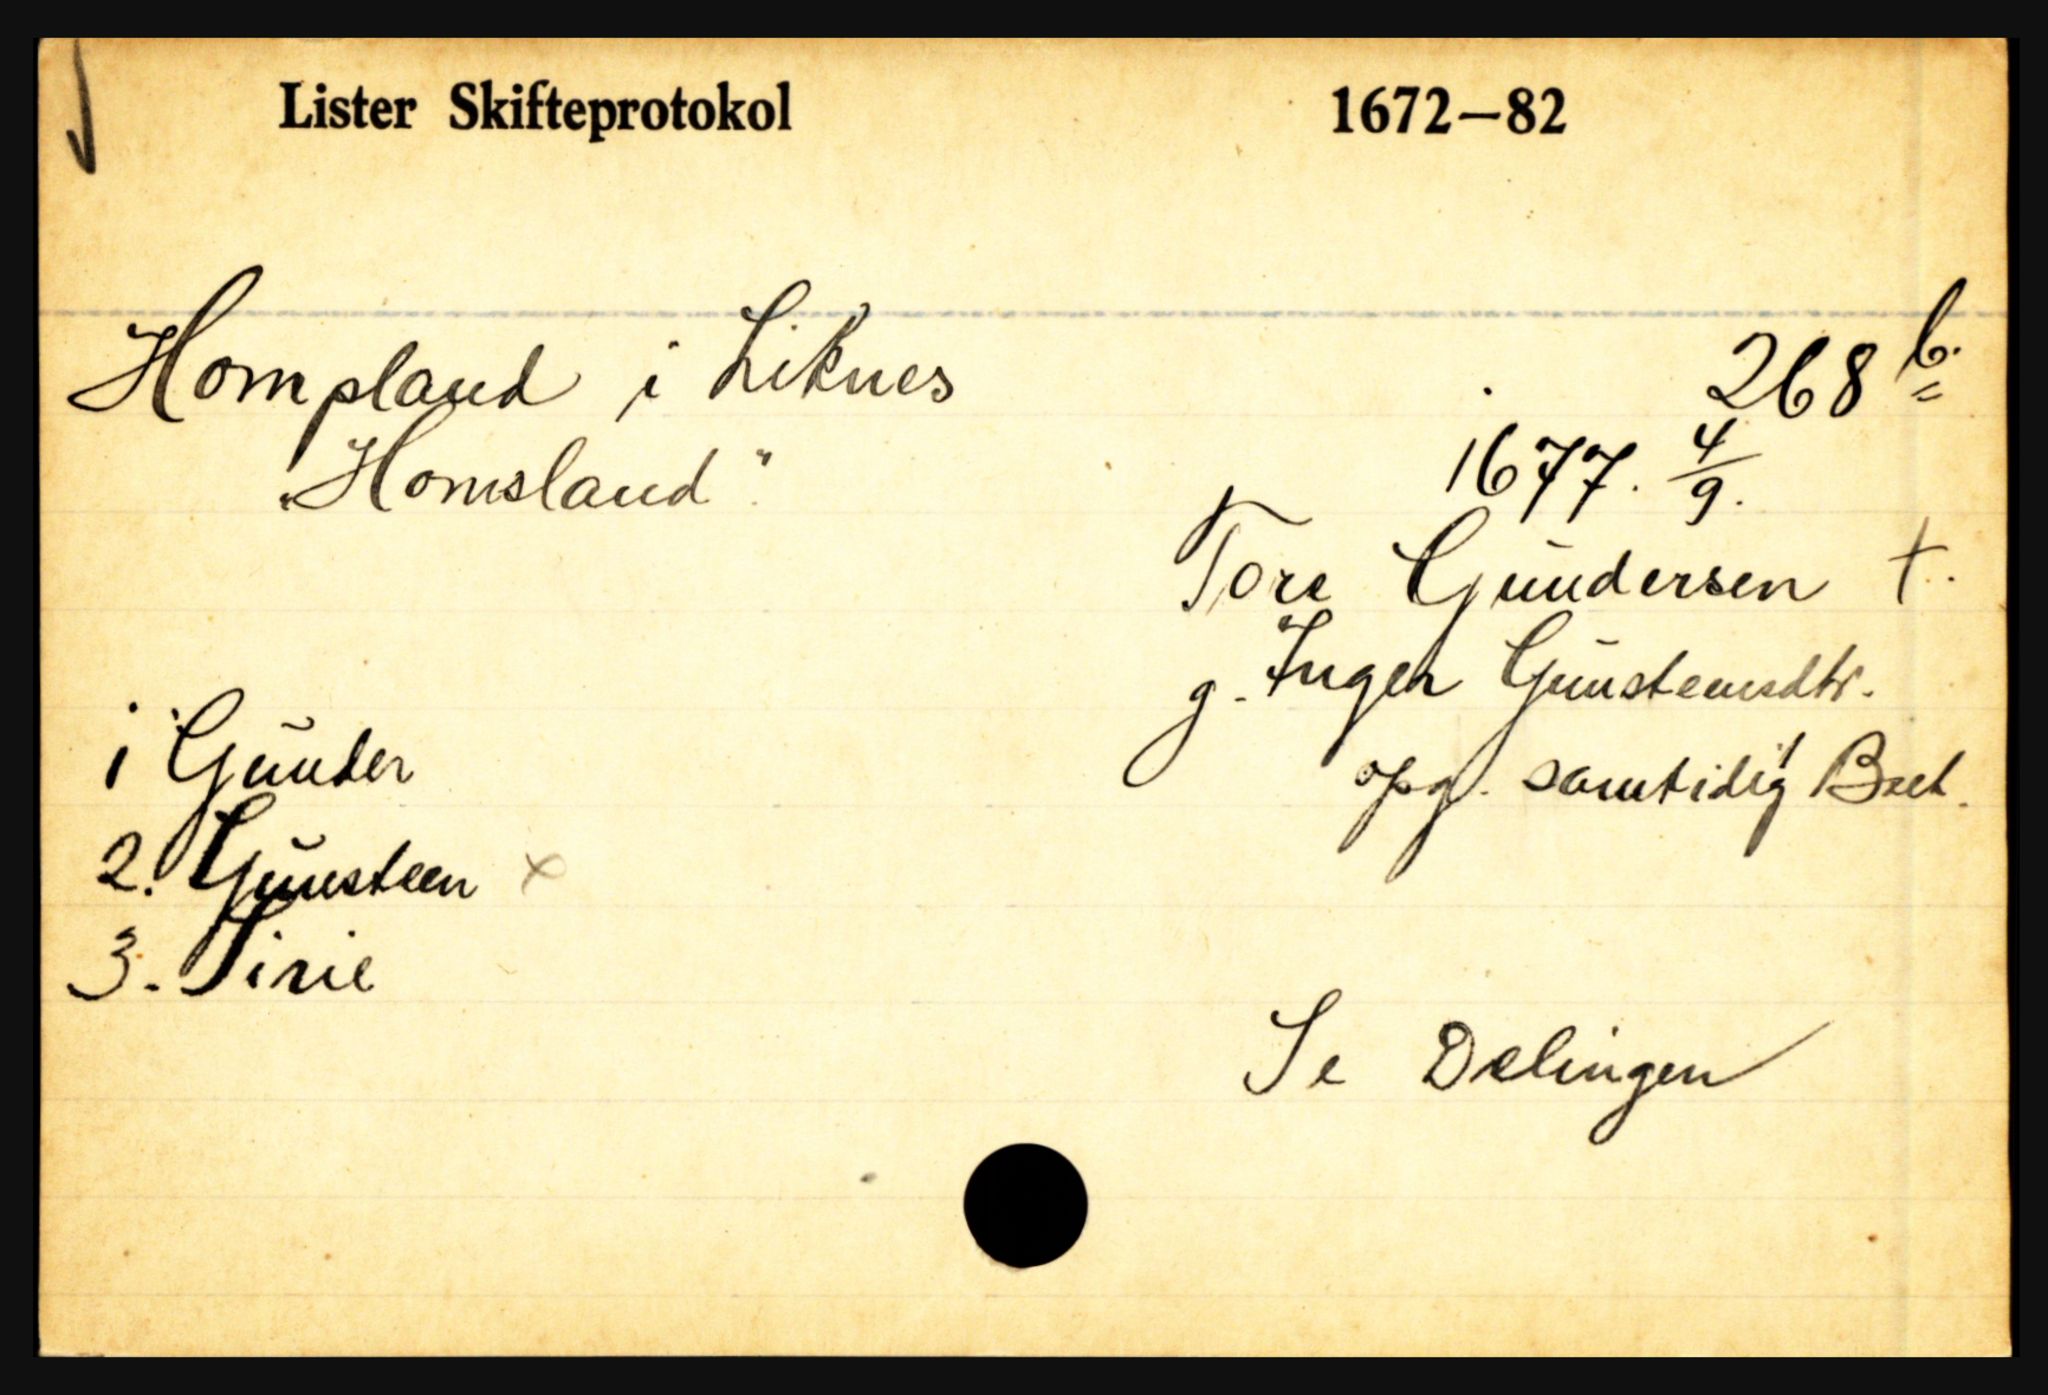 Lister Skifteprotokol 1672–82
Hompland i Liknes 268 b.
„Homsland" 1677. 4/9.
Tore Gŭndersen †.
g. Inger Gŭnsteensdtr.
opg. samtidig
1 Gŭnder
2. Gŭnsteen x
3. Sirie
Se Delingen